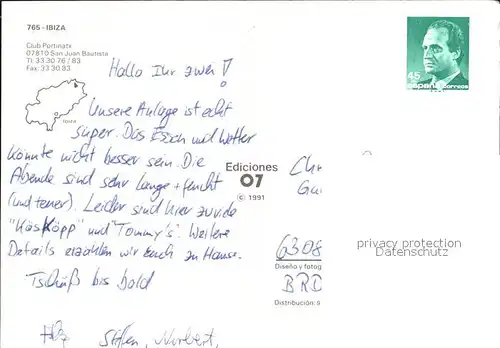 765 - IBIZA
Club Portinatx
07810 San Juan Bautista
Tl: 33 30 76 / 83
Fax: 33 30 83
Ibiza
Hallo Ihr zwei!
Unsere Anlage ist echt
super. Das Essen und Wetter
könnte nicht besser sein. Die
Abende sind sehr lange + feucht
(und teuer). Leider sind hier zuviele
"Käsköpp" und "Tommy's". Weitere
Details erzählen wir Euch zu Hause.
Tschüß bis bald
Stefan, Norbert,
Ediciones
07
© 1991
45
España correos
6308
Diseño y fotog
BRD
Distribución:
privacy protection
Datenschutz